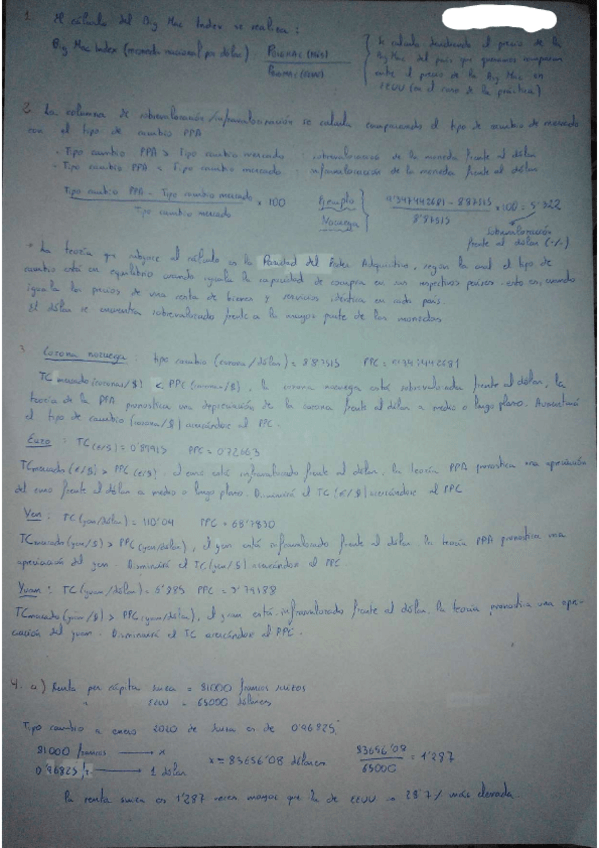 1. El cálculo del Big Mac Index se realiza:
Big Mac Index (moneda nacional por dólar)
Se calcula dividiendo el precio de la
Big Mac del país que queremos comparar
entre el precio de la Big Mac en
EEUU (en el caso de la práctica)
2. La columna de sobrevaloración/infravaloración se calcula comparando el tipo de cambio de mercado
con el tipo de cambio PPA
- Tipo cambio PPA > Tipo cambio mercado : sobrevaloración de la moneda frente al dólar
- Tipo cambio PPA < Tipo cambio mercado : infravaloración de la moneda frente al dólar
Tipo cambio PPA - Tipo cambio mercado x 100
Tipo cambio mercado
Ejemplo
Noruega
8'87515
x 100 = 5'322
sobrevaloración
frente al dólar (%)
* La teoría que subyace al cálculo es la Paridad del Poder Adquisitivo, según la cual el tipo de
cambio está en equilibrio cuando iguala la capacidad de compra en sus respectivos países. esto es, cuando
iguala los precios de una cesta de bienes y servicios idéntica en cada país.
El dólar se encuentra sobrevalorado frente a la mayor parte de las monedas
3. Corona noruega : tipo cambio (corona/dólar) = 8'87515 PPC =
TC mercado (coronas/$) < PPC (coronas/$), la corona noruega está sobrevalorada frente al dólar, la
teoría de la PPA pronostica una depreciación de la corona frente al dólar a medio o largo plazo. Aumentará
el tipo de cambio (corona/$) acercándose al PPC.
Euro : TC (€/$) = PPC =
TC mercado (€/$) > PPC (€/$). el euro está infravalorado frente al dólar. La teoría PPA pronostica una apreciación
del euro frente al dólar a medio o largo plazo. Disminuirá el TC (€/$) acercándose al PPC
Yen : TC (yen/dólar) = 110'04 PPC = 68'7830
TC mercado (yen/$) > PPC (yen/dólar), el yen está infravalorado frente al dólar. La teoría PPA pronostica una
apreciación del yen. Disminuirá el TC (yen/$) acercándose al PPC
Yuan : TC (yuan/dólar) = PPC = 3'79188
TC mercado (yuan/$) > PPC (yuan/dólar), el yuan está infravalorado frente al dólar. La teoría pronostica una apre-
ciación del yuan. Disminuirá el TC acercándose al PPC.
4. a) Renta per cápita suiza = 81000 francos suizos
" EEUU = 65000 dólares
Tipo cambio a enero 2020 de Suiza es de 0'96825
81000 francos → x
0'96825 → 1 dólar
x = 83656'08 dólares
83656'08
65000
= 1'287
La renta suiza es 1'287 veces mayor que la de EEUU → 28'7% más elevada